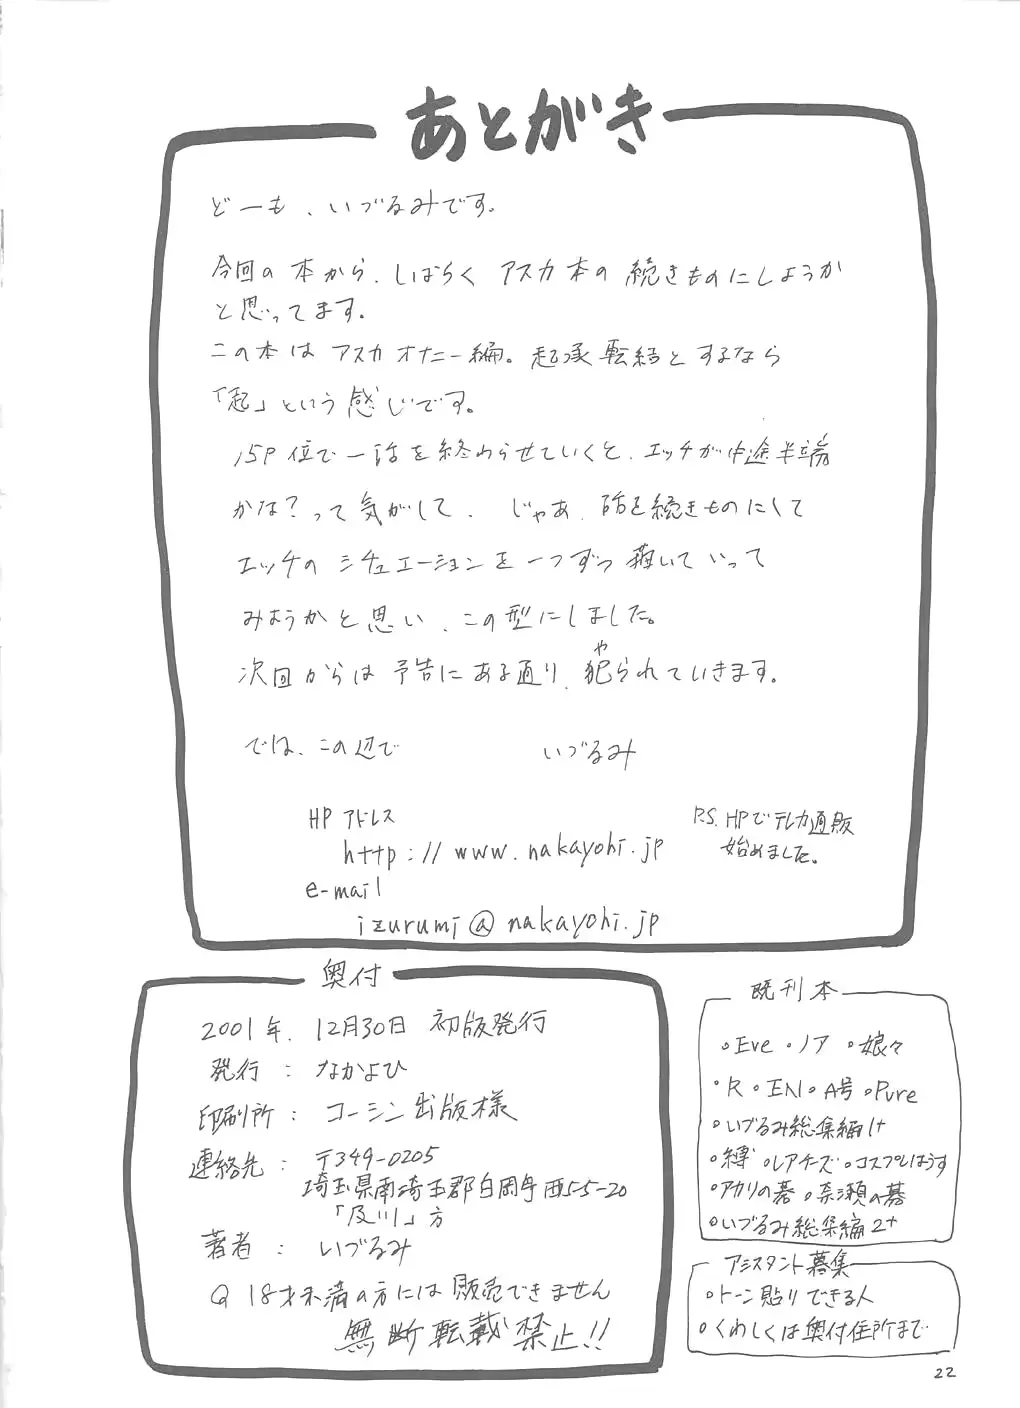 あとがき
どーも、いづるみです。
今回の本から、しばらくアスカ本の続きものにしようか
と思ってます。
この本はアスカオナニー編。起承転結とするなら
「起」という感じです。
15P位で一話を終わらせていくと、エッチが中途半端
かな?って気がして、じゃあ、話を続きものにして
エッチのシチュエーションを一つずつ描いていって
みようかと思い、この型にしました。
次回からは予告にある通り、犯(や)られていきます。
では、この辺で いづるみ
HPアドレス
http://www.nakayohi.jp
e-mail
izurumi@nakayohi.jp
P.S. HPでテレカ通販
始めました。
奥付
2001年、12月30日 初版発行
発行:なかよひ
印刷所:コーシン出版様
連絡先:〒349-0205
埼玉県南埼玉郡白岡町西5-5-20
「及川」方
著者:いづるみ
18才未満の方には販売できません
無断転載禁止!!
既刊本
○Eve ○ノア ○娘々
○R ○EN ○A号 ○Pure
○いづるみ総集編1+
○縛 ○レアチーズ ○コスプレはうす
○アカリの碁 ○奈瀬の碁
○いづるみ総集編2+
アシスタント募集
○トーン貼りできる人
○くわしくは奥付住所まで
22